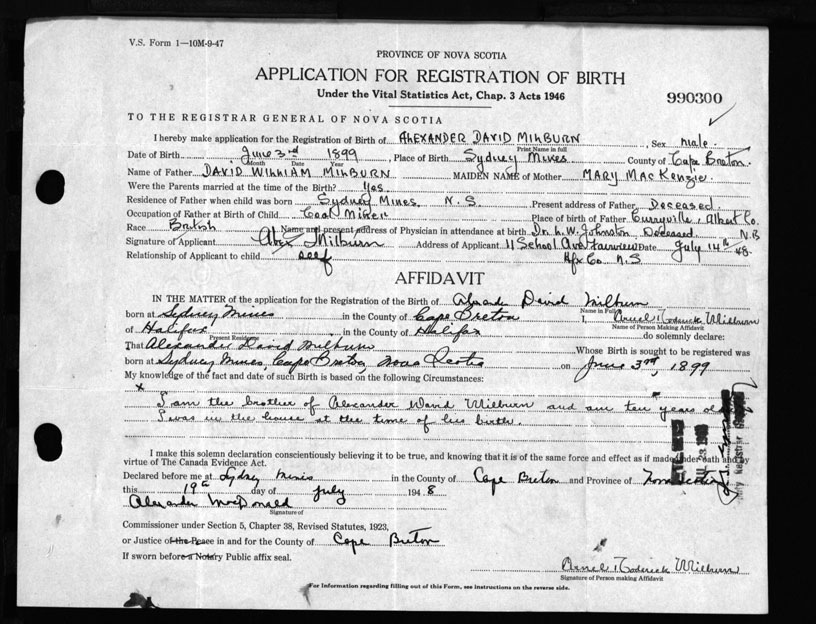 V.S. Form 1—10M-9-47
PROVINCE OF NOVA SCOTIA
APPLICATION FOR REGISTRATION OF BIRTH
Under the Vital Statistics Act, Chap. 3 Acts 1946
990300
TO THE REGISTRAR GENERAL OF NOVA SCOTIA
I hereby make application for the Registration of Birth of ALEXANDER DAVID MILBURN, Sex male.
Print Name in full
Date of Birth June 3rd 1899, Place of Birth Sydney Mines County of Cape Breton.
Month Date Year
Name of Father DAVID WILLIAM MILBURN MAIDEN NAME of Mother MARY MACKENZIE.
Were the Parents married at the time of the Birth? Yes
Residence of Father when child was born Sydney Mines, N.S. Present address of Father Deceased.
Occupation of Father at Birth of Child Coal Miner Place of birth of Father Curryville, Albert Co.
Race British Name and present address of Physician in attendance at birth Dr. L.W. Johnston Deceased. N.B
Signature of Applicant Alex Milburn Address of Applicant 11 School Ave Fairview Date July 14th 48.
Relationship of Applicant to child self Hfx Co. N.S.
AFFIDAVIT
IN THE MATTER of the application for the Registration of the Birth of Alexander David Milburn
Name in Full
born at Sydney Mines in the County of Cape Breton I, Roderick Milburn
Name of Person Making Affidavit
of Halifax in the County of Halifax do solemnly declare:
Present Residence
That Alexander David Milburn Whose Birth is sought to be registered was
born at Sydney Mines, Cape Breton, Nova Scotia on June 3rd, 1899
My knowledge of the fact and date of such Birth is based on the following Circumstances:
x
I am the brother of Alexander David Milburn and am ten years
I was in the house at the time of his birth.
I make this solemn declaration conscientiously believing it to be true, and knowing that it is of the same force and effect as if made under oath and by
virtue of The Canada Evidence Act.
Declared before me at Sydney Mines in the County of Cape Breton and Province of Nova Scotia
this 19th day of July 1948
Alexander McDonald
Signature of
Commissioner under Section 5, Chapter 38, Revised Statutes, 1923,
or Justice of the Peace in and for the County of Cape Breton
If sworn before a Notary Public affix seal.
Roderick Milburn
Signature of Person making Affidavit
For information regarding filling out of this Form, see instructions on the reverse side.